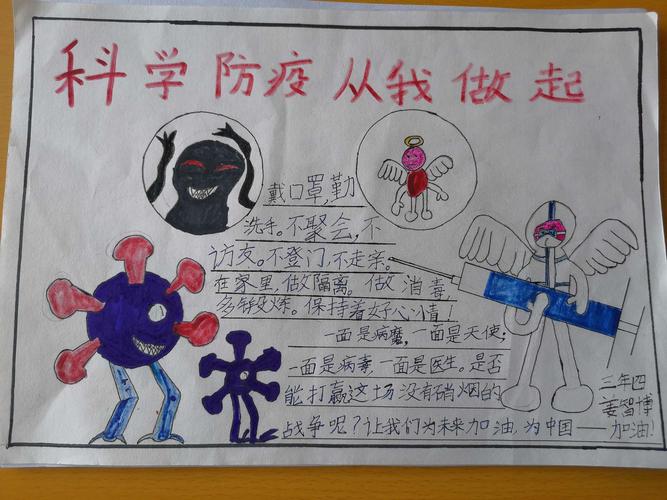 科学防疫从我做起
戴口罩,勤
洗手。不聚会,不
访友。不登门,不走亲。
在家里,做隔离。做消毒,
多锻炼。保持着好心情!
一面是病魔,一面是天使;
一面是病毒,一面是医生。是否
能打赢这场没有硝烟的
战争呢?让我们为未来加油,为中国——加油!
三年四
姜智博